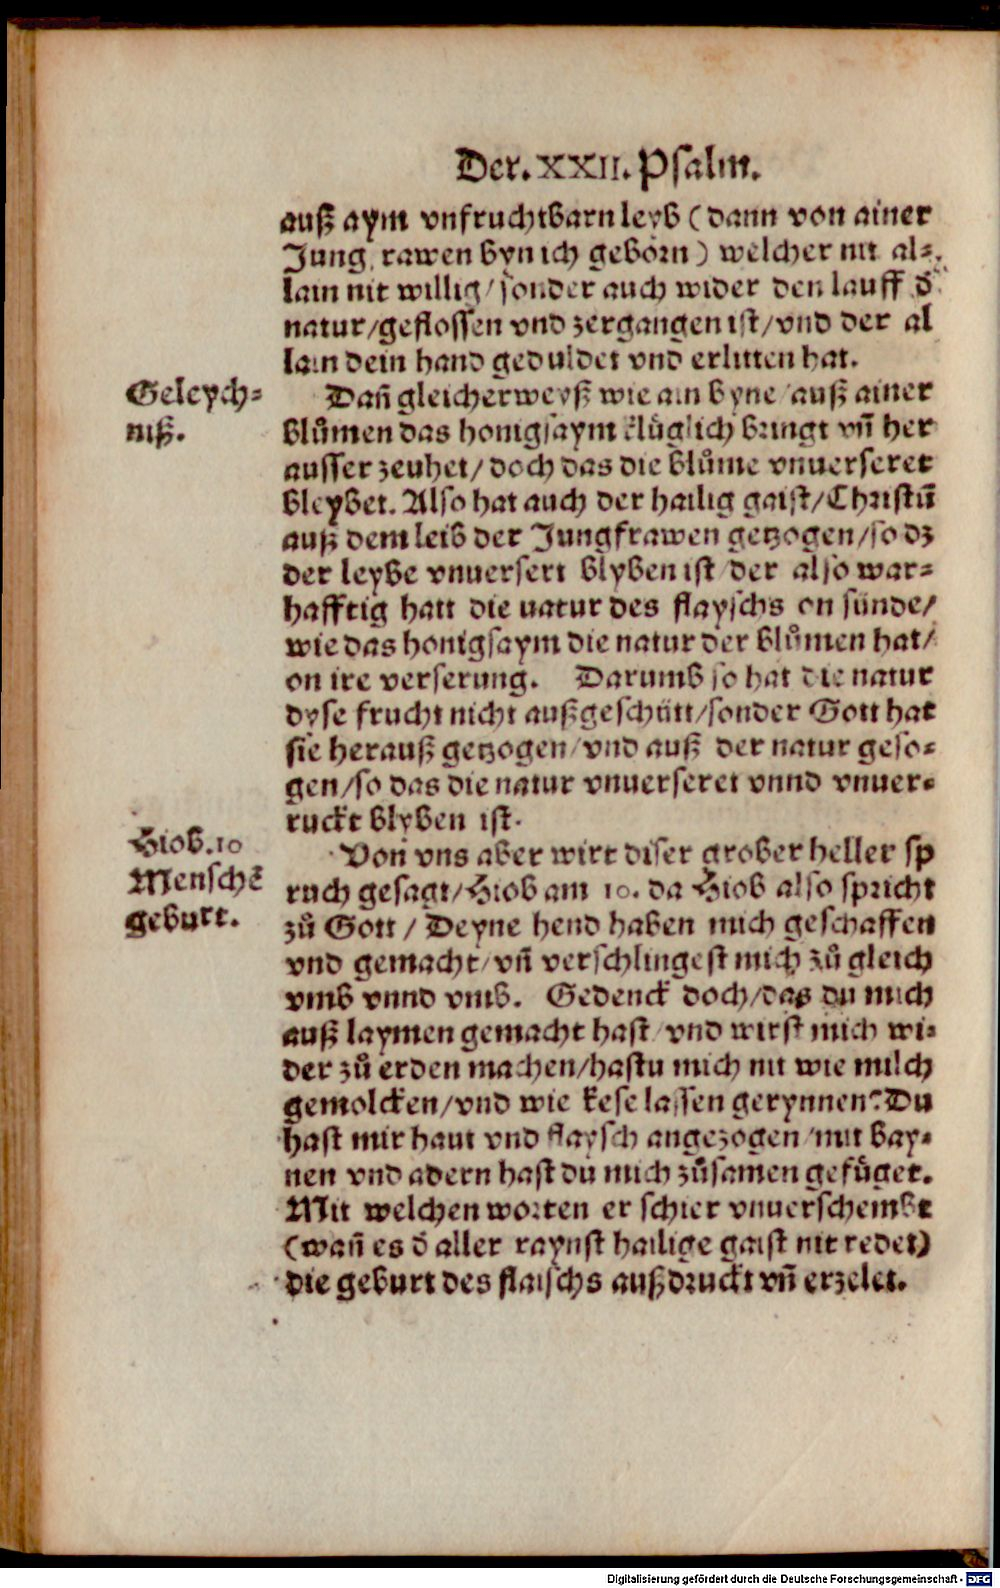 Der. XXII. Psalm.
auß aym vnfruchtbarn leyb (dann von ainer
Jung rawen byn ich geborn) welcher nit al⸗
lain nit willig/ sonder auch wider den lauff d̕
natur/geflossen vnd zergangen ist/vnd der al
lain dein hand geduldet vnd erlitten hat.
Geleych⸗
niß.
Dañ gleicherweyß wie ain byne/auß ainer
blůmen das honigsaym klüglich bringt vñ her
ausser zeuhet/ doch das die blůme vnuerseret
bleybet. Also hat auch der hailig gaist/Christū
auß dem leib der Jungfrawen getzogen/so dz
der leybe vnuersert blyben ist/der also war⸗
hafftig hatt die natur des flayschs on sünde/
wie das honigsaym die natur der blůmen hat/
on ire verserung. Darumb so hat die natur
dyse frucht nicht außgeschütt/sonder Gott hat
sie herauß getzogen/vnd auß der natur geso⸗
gen/so das die natur vnuerseret vnnd vnuer⸗
ruckt blyben ist.
Hiob.10
Menschē
geburt.
Von vns aber wirt diser grober heller sp
ruch gesagt/Hiob am 10. da Hiob also spricht
zů Gott/ Deyne hend haben mich geschaffen
vnd gemacht/vñ verschlingest mich zů gleich
vmb vnnd vmb. Gedenck doch/das du mich
auß laymen gemacht hast/vnd wirst mich wi⸗
der zů erden machen/hastu mich nit wie milch
gemolcken/vnd wie kese lassen gerynnen? Du
hast mir haut vnd flaysch angezogen/mit bay⸗
nen vnd adern hast du mich zůsamen gefüget.
Mit welchen worten er schier vnuerschembt
(wañ es d̕ aller raynst hailige gaist nit redet)
die geburt des flaischs außdruckt vñ erzelet.
Digitalisierung gefördert durch die Deutsche Forschungsgemeinschaft - DFG